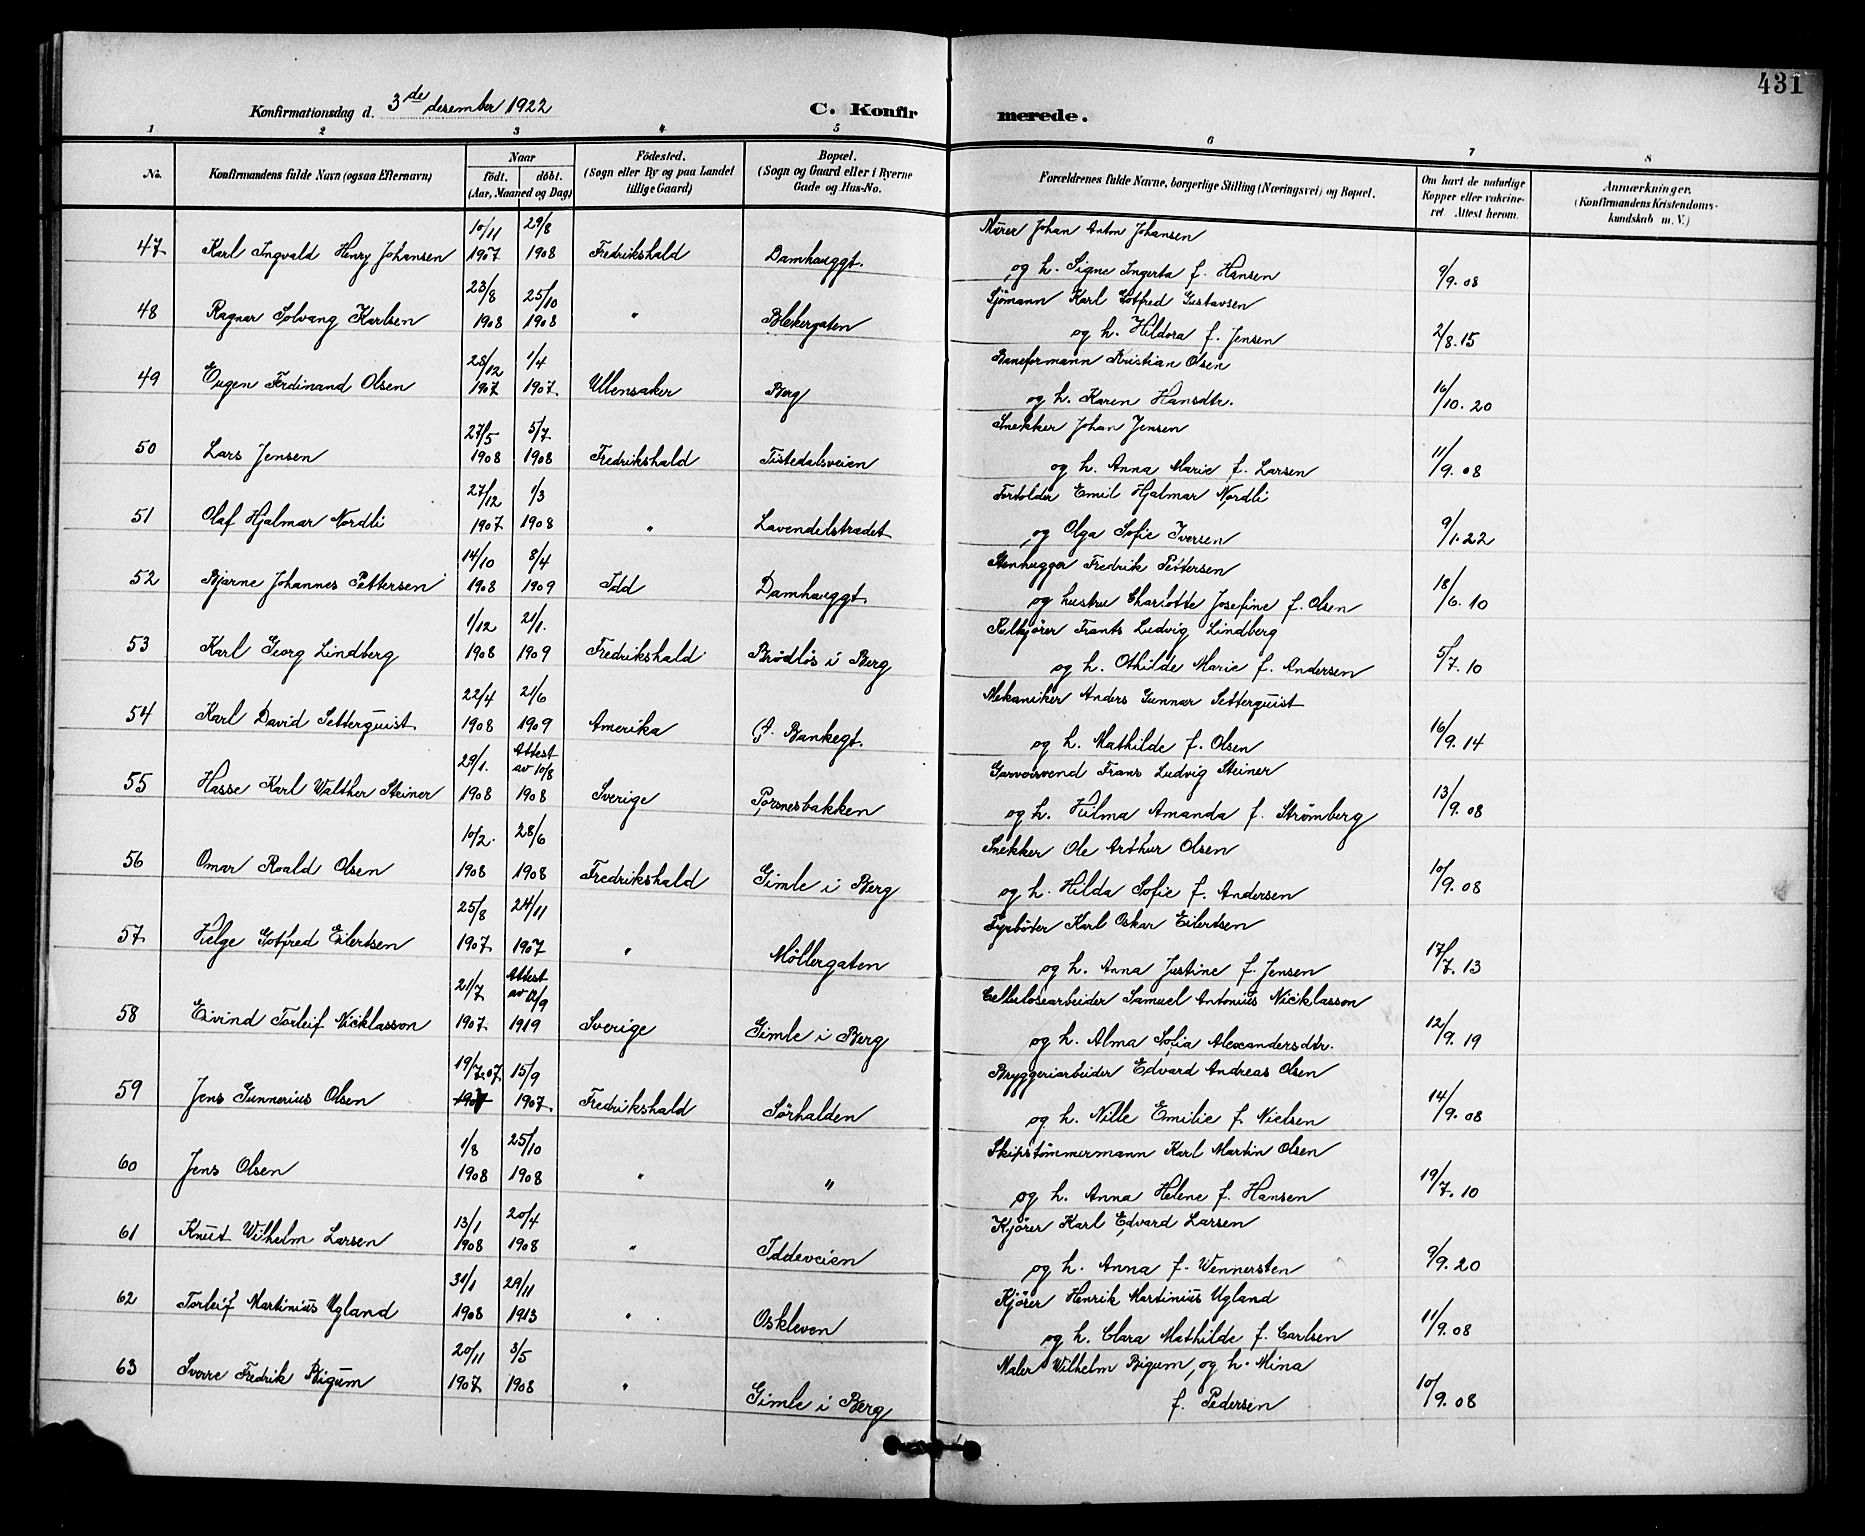 431
Konfirmationsdag d. 3de desember 1922 C. Konfirmerede.
1 2 3 4 5 6 7 8
No. Konfirmandens fulde Navn (ogsaa Efternavn) Naar født. døbt. (Aar, Maaned og Dag) Födested. (Sogn eller By og paa Landet tillige Gaard) Bopæl. (Sogn og Gaard eller i Byerne Gade og Hus-No. Forældrenes fulde Navne, borgerlige Stilling (Næringsvei) og Bopæl. Om havt de naturlige Kopper eller vakcineret. Attest herom. Anmærkninger. (Konfirmandens Kristendomskundskab m. V.)
47 Karl Ingvald Henry Johansen 10/11 1907 29/8 1908 Fredrikshald Damhauggt. Murer Johan Anton Johansen
og h. Signe Ingerta f. Hansen 9/9.08
48 Ragnar Solvang Karlsen 23/8 1908 25/10 1908 " Blekergaten Sjömann Karl Gotfred Gustavsen
og h. Hildora f. Jensen 2/8.15
49 Eugen Ferdinand Olsen 28/12 1907 1/4 1907. Ullensaker Berg Baneformann Kristian Olsen
og h. Karen Hansdtr. 16/10.20
50 Lars Jensen 27/5 1908 5/7 1908 Fredrikshald Tistedalsveien Snekker Johan Jensen
og h. Anna Marie f. Larsen 11/9.08
51 Olaf Hjalmar Nordli 27/12 1907 1/3 1908 " Lavendelstrædet Forvolder Emil Hjalmar Nordli
og Olga Sofie Iversen 9/1.22
52 Bjarne Johannes Pettersen 14/10 1908 8/4 1909 Idd Damhauggt. Stenhugger Fredrik Pettersen
og hustru Charlotte Josefine f. Olsen 18/6.10
53 Karl Georg Lindberg 1/12 1908 21/1. 1909 Fredrikshald Brödlös i Berg Kulkjører Frants Ludvig Lindberg
og h. Othilde Marie f. Andersen 5/7.10
54 Karl David Setterquist 22/4 1908 21/6 1909 Amerika P. Bankegt. Mekaniker Anders Gunnar Setterquist
og h. Mathilde f. Olsen 16/9.14
55 Hasse Karl Walther Steiner 29/1. 1908 Attest av 10/8 1908 Sverige Porsnesbakken Garversvend Frans Ludvig Steiner
og h. Hilma Amanda f. Strømberg 13/9.08
56 Omar Roald Olsen 10/2. 1908 28/6 1908 Fredrikshald Gimle i Berg Snekker Ole Arthur Olsen
og h. Hilda Sofie f. Andersen 10/9.08
57. Helge Gotfred Eilertsen 25/8 1907. 24/11 1907 " Möllergaten Fyrböter Karl Oskar Eilertsen
og h. Anna Justine f. Jensen 17/7.13
58 Eivind Torleif Nicklasson 21/7 1907. Attest av 12/9 1919 Sverige Gimle i Berg Cellulosearbeider Samuel Antonius Nicklasson
og h. Alma Sofia Alexandersdtr. 12/9.19
59 Jens Gunnerius Olsen 19/7.07. 1907 15/9 1907. Fredrikshald Sörhalden Bryggeriarbeider Edvard Andreas Olsen
og h. Nille Emilie f. Nielsen 14/9.08
60 Jens Olsen 1/8 1908 25/10 1908 " " Skipstömmermann Karl Martin Olsen
og h. Anna Helene f. Hansen 19/7.10
61 Knut Wilhelm Larsen 13/1 1908 20/4 1908 " Iddeveien Kjører Karl Edvard Larsen
og h. Anna f. Wennersten 9/9.20
62 Torleif Martinius Ugland 31/1 1908 29/11 1913 " Oskleven Kjører Henrik Martinius Ugland
og h. Clara Mathilde f. Carlsen 11/9.08
63 Sverre Fredrik Bigum 20/11 1907 3/5 1908 " Gimle i Berg Maler Wilhelm Bigum, og h. Mina
f. Pedersen 10/9.08